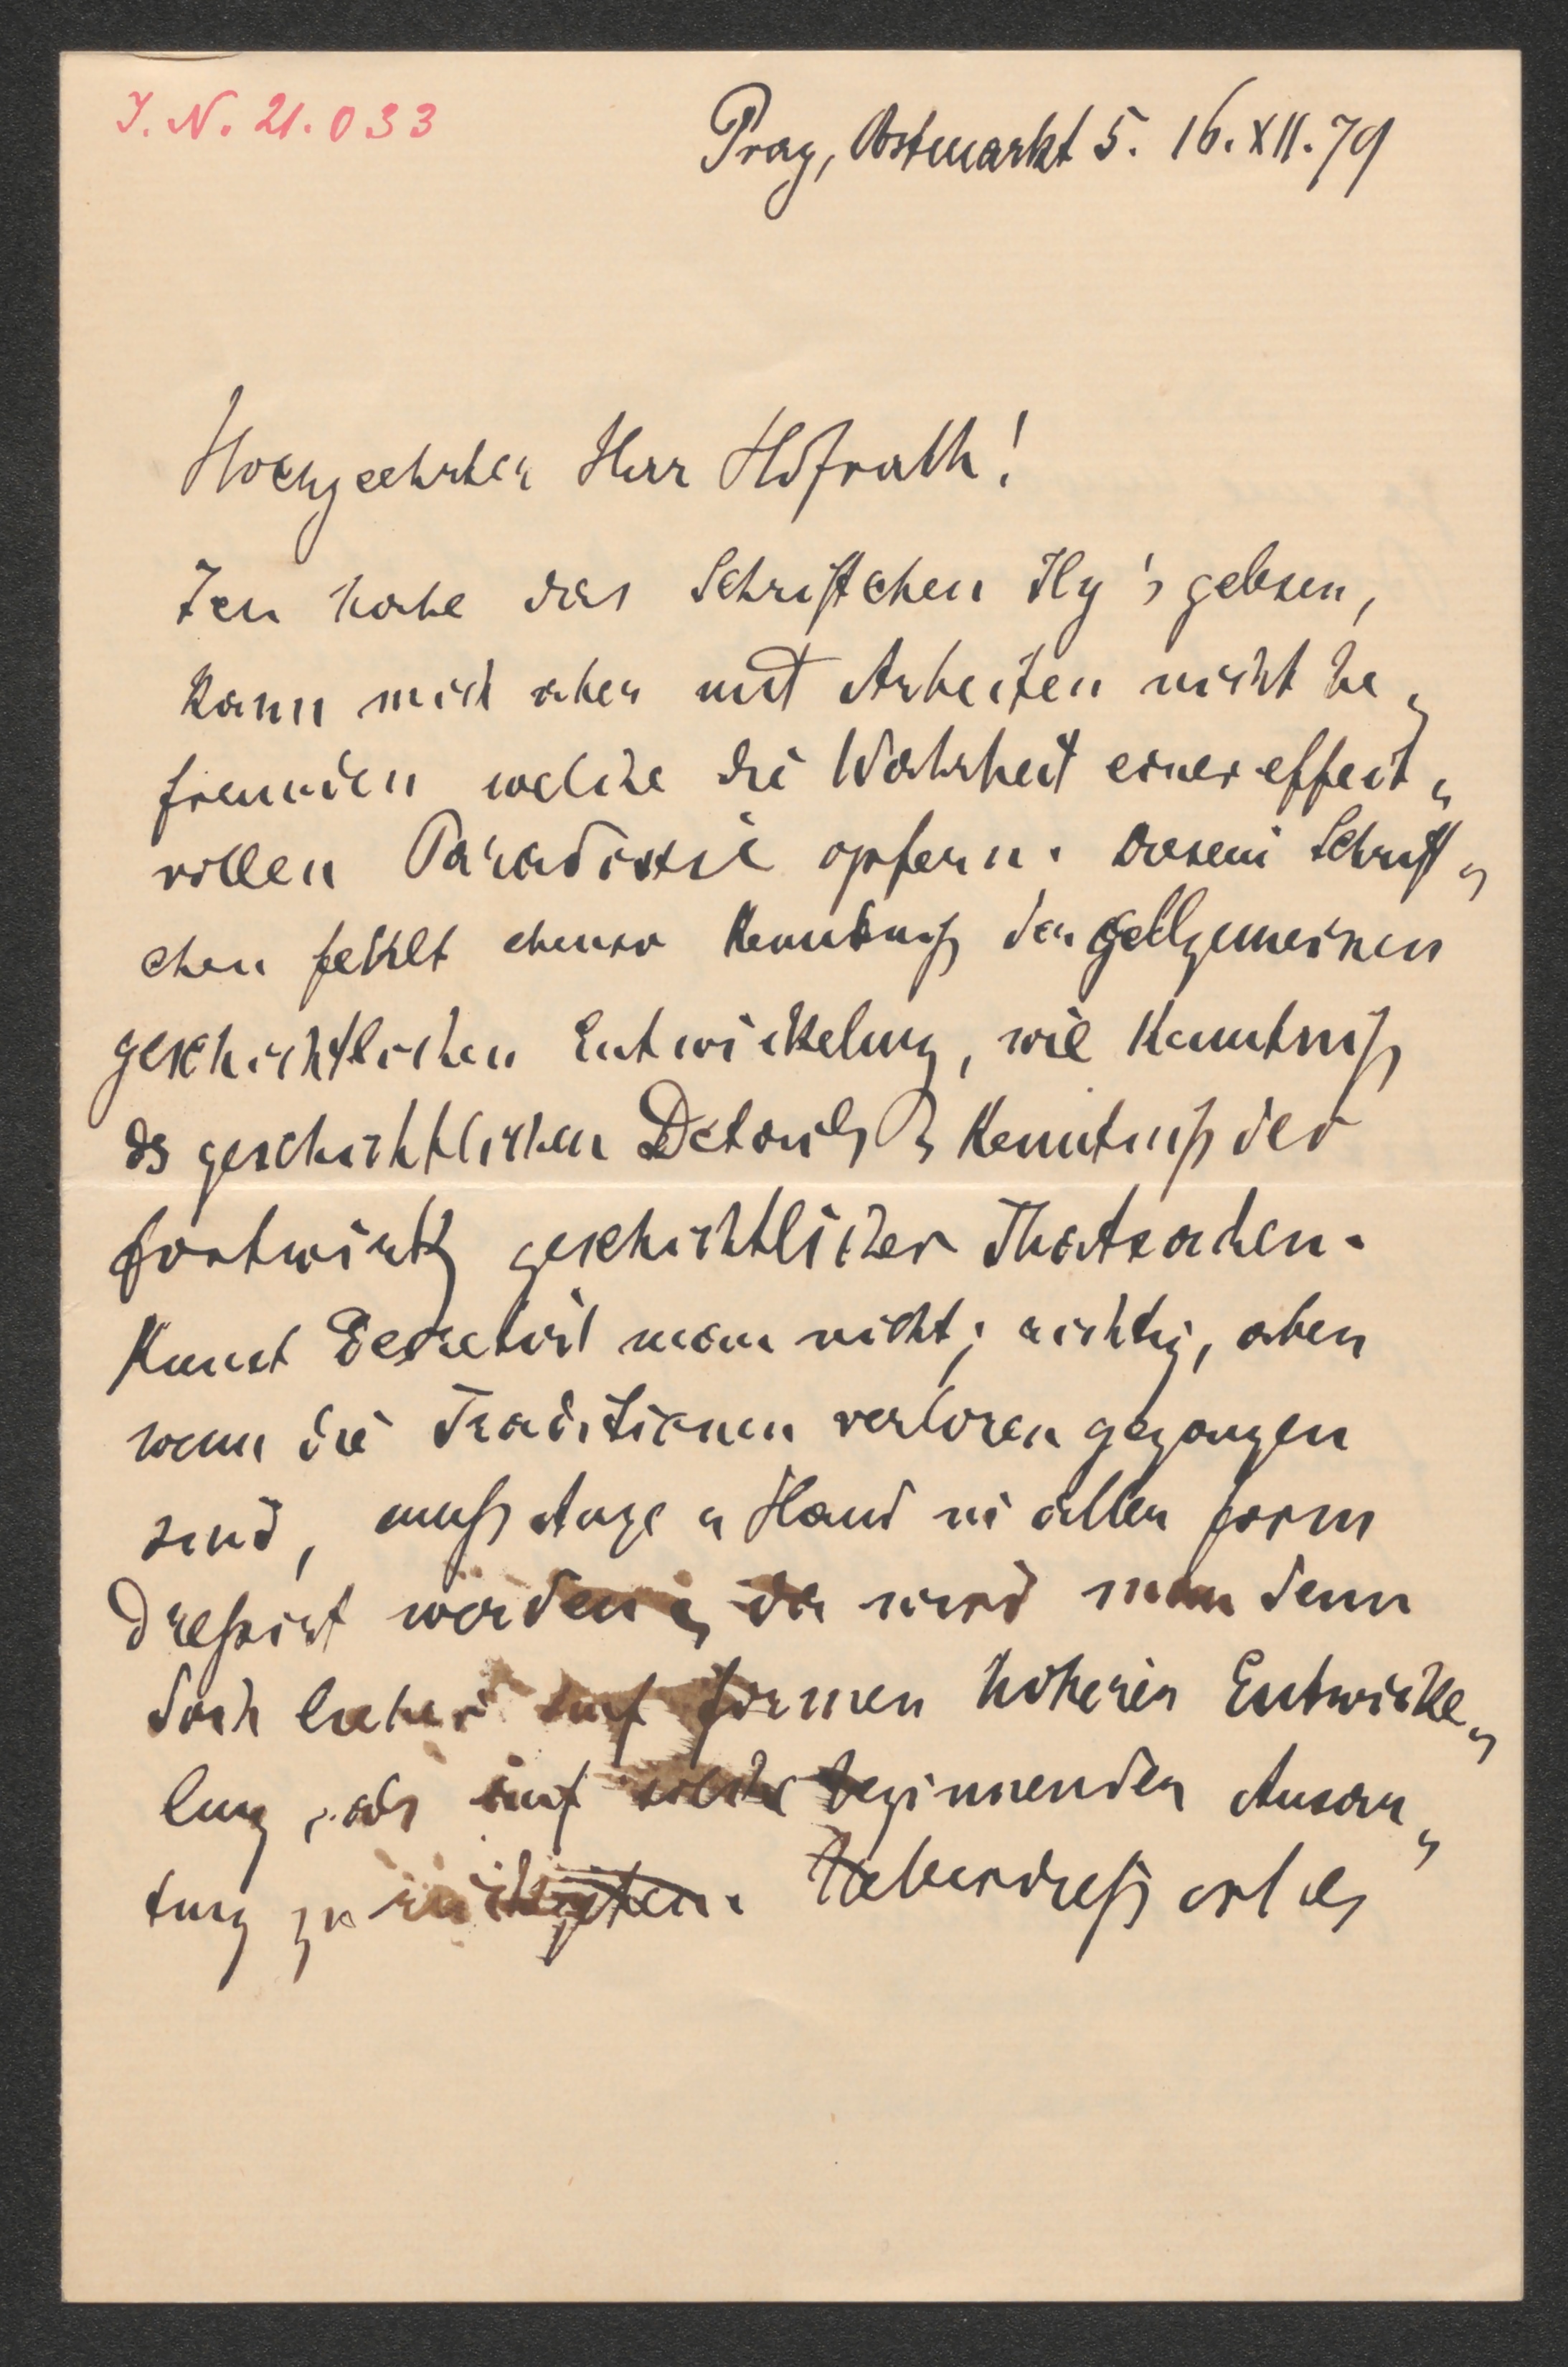 I. N. 21.033
Prag, Obstmarkt 5. 16.XII.79
Hochgeehrter Herr Hofrath!
Ich habe das Schriftchen Ilg's gelesen,
kann mich aber mit Arbeiten nicht be„
freunden welche die Wahrheit einer effect„
vollen Paradoxie opfern. Diesem Schrift„
chen fehlt ebenso Kenntniß der allgemeinen
geschichtlichen Entwickelung, wie Kenntniß
des geschichtlichen Details Kenntniß der
fortwirkg geschichtlicher Thatsachen.
Kunst decretirt man nicht; richtig, aber
wenn die Traditionen verloren gegangen
sind, muß Auge u Hand in aller Form
dreßirt werden; da wird man denn
doch lieber auf Formen höherer Entwicke„
lung, als auf solche beginnender Ausar„
tung zu Ueberdieß ist es